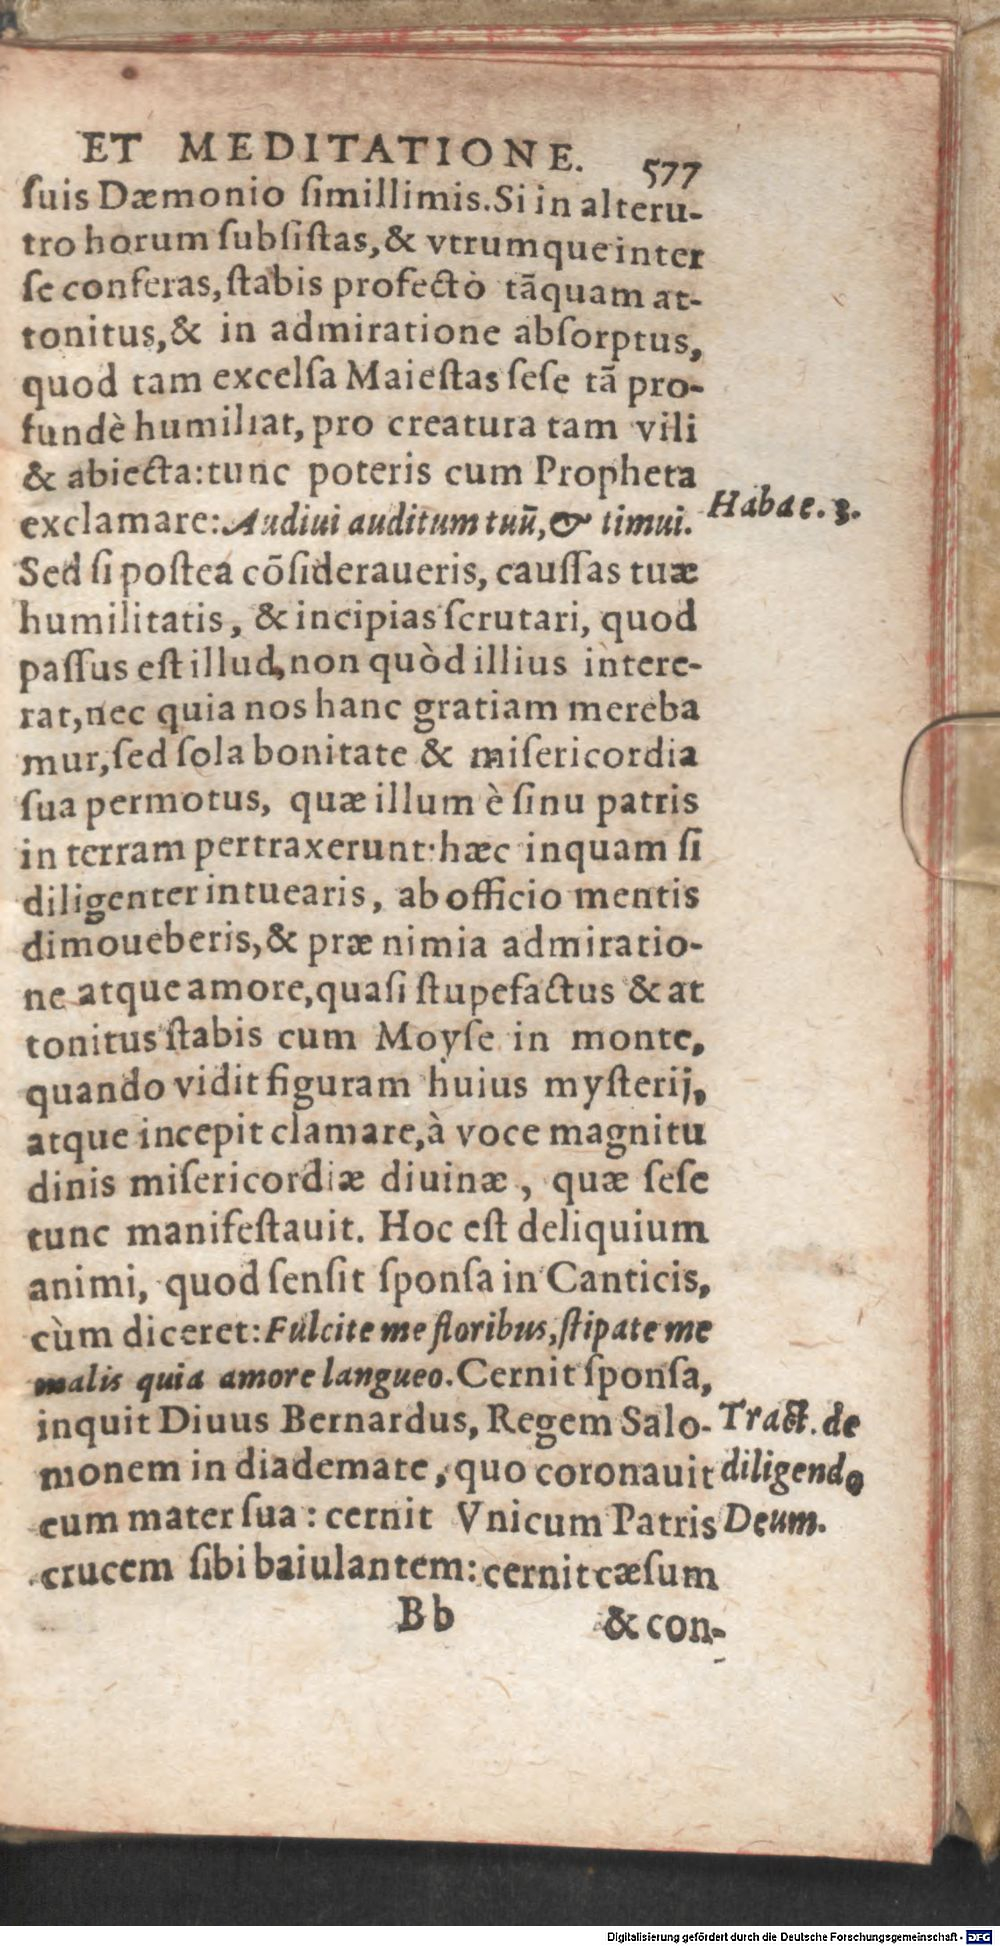 ET MEDITATIONE. 577
ſuis Dæmonio ſimillimis. Si in alteru-
tro horum ſubſiſtas, & vtrumque inter
ſe conferas, ſtabis profectò tãquam at-
tonitus, & in admiratione abſorptus,
quod tam excelſa Maieſtas ſeſe tã pro-
fundè humiliat, pro creatura tam vili
& abiecta: tunc poteris cum Propheta
exclamare: Audiui auditum tuũ, & timui. Habac. 3.
Sed ſi poſtea cõſideraueris, cauſſas tuæ
humilitatis, & incipias ſcrutari, quod
paſſus eſt illud, non quòd illius intere-
rat, nec quia nos hanc gratiam mereba
mur, ſed ſola bonitate & miſericordia
ſua permotus, quæ illum è ſinu patris
in terram pertraxerunt: hæc inquam ſi
diligenter intuearis, ab officio mentis
dimoueberis, & præ nimia admiratio-
ne atque amore, quaſi ſtupefactus & at
tonitus ſtabis cum Moyſe in monte,
quando vidit figuram huius myſterij,
atque incepit clamare, à voce magnitu
dinis miſericordiæ diuinæ, quæ ſeſe
tunc manifeſtauit. Hoc eſt deliquium
animi, quod ſenſit ſponſa in Canticis,
cùm diceret: Fulcite me floribus, ſtipate me
malis quia amore langueo. Cernit ſponſa,
inquit Diuus Bernardus, Regem Salo- Tract. de
monem in diademate, quo coronauit diligendo
eum mater ſua: cernit Vnicum Patris Deum.
crucem ſibi baiulantem: cernit cæſum
Bb & con-
Digitalisierung gefördert durch die Deutsche Forschungsgemeinschaft - DFG